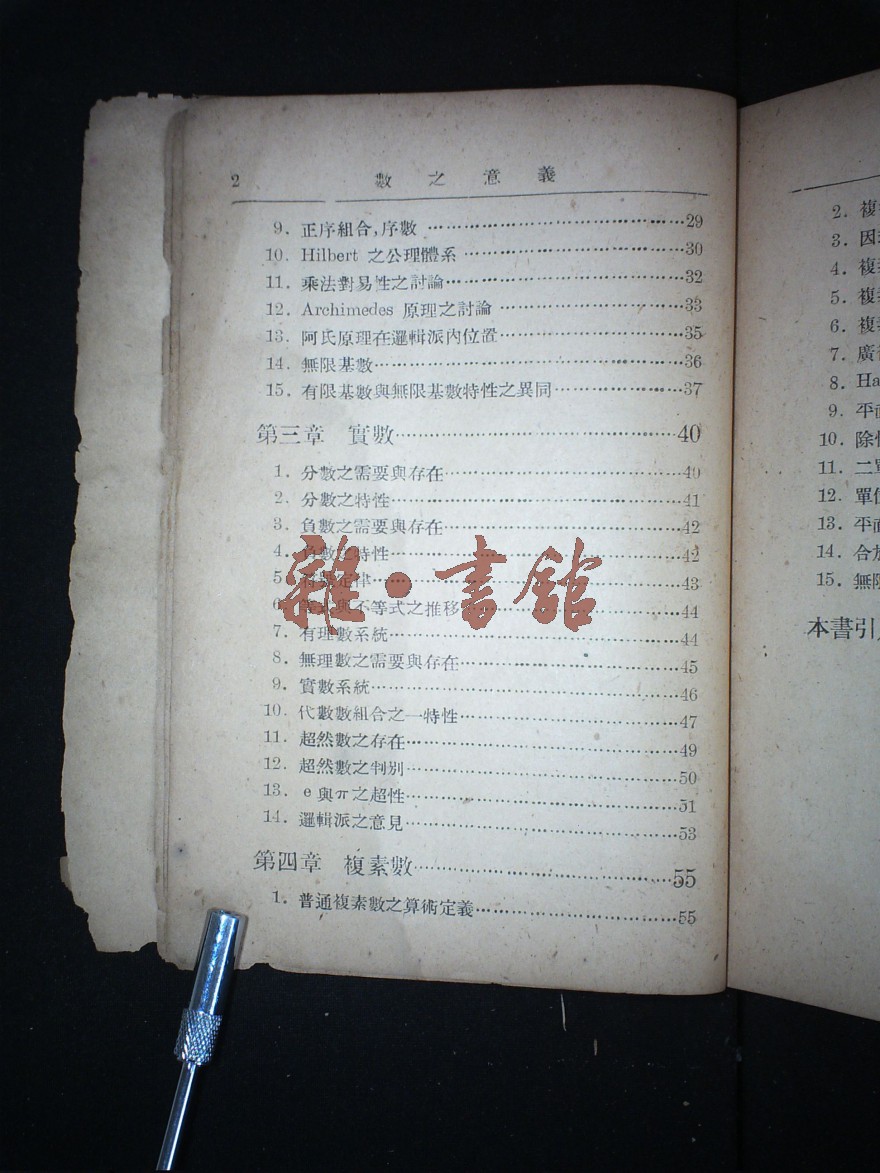 2 數之意義
9. 正序組合,序數 29
10. Hilbert 之公理體系 30
11. 乘法對易性之討論 32
12. Archimedes 原理之討論 33
13. 阿氏原理在邏輯派內位置 35
14. 無限基數 36
15. 有限基數與無限基數特性之異同 37
第三章 實數 40
1. 分數之需要與存在 40
2. 分數之特性 41
3. 負數之需要與存在 42
4. 負數之特性 42
5. 定律 43
6. 等式與不等式之推移 44
7. 有理數系統 44
8. 無理數之需要與存在 45
9. 實數系統 46
10. 代數數組合之一特性 47
11. 超然數之存在 49
12. 超然數之判別 50
13. e與π之超性 51
14. 邏輯派之意見 53
第四章 複素數 55
1. 普通複素數之算術定義 55
雜·書館
2. 複
3. 因
4. 複
5. 複
6. 複
7. 廣
8. Ha
9. 平面
10. 除
11. 二
12. 單位
13. 平面
14. 合
15. 無限
本書引